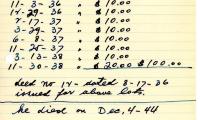 11 - 3 - 36 " $ 10.00
14 - 29 - 36 " $ 10.00
7 - 17 - 37 " $ 10.00
3 - 29 - 37 " $ 10.00
6 - 8 - 37 " $ 10.00
11 - 25 - 37 " $ 10.00
3 - 10 - 38 " $ 10.00
11 - 30 - 38 " $ 20.00 $100.00
deed no 14 - dated 8-17-36
issued for above lots.
he died on Dec, 4-44